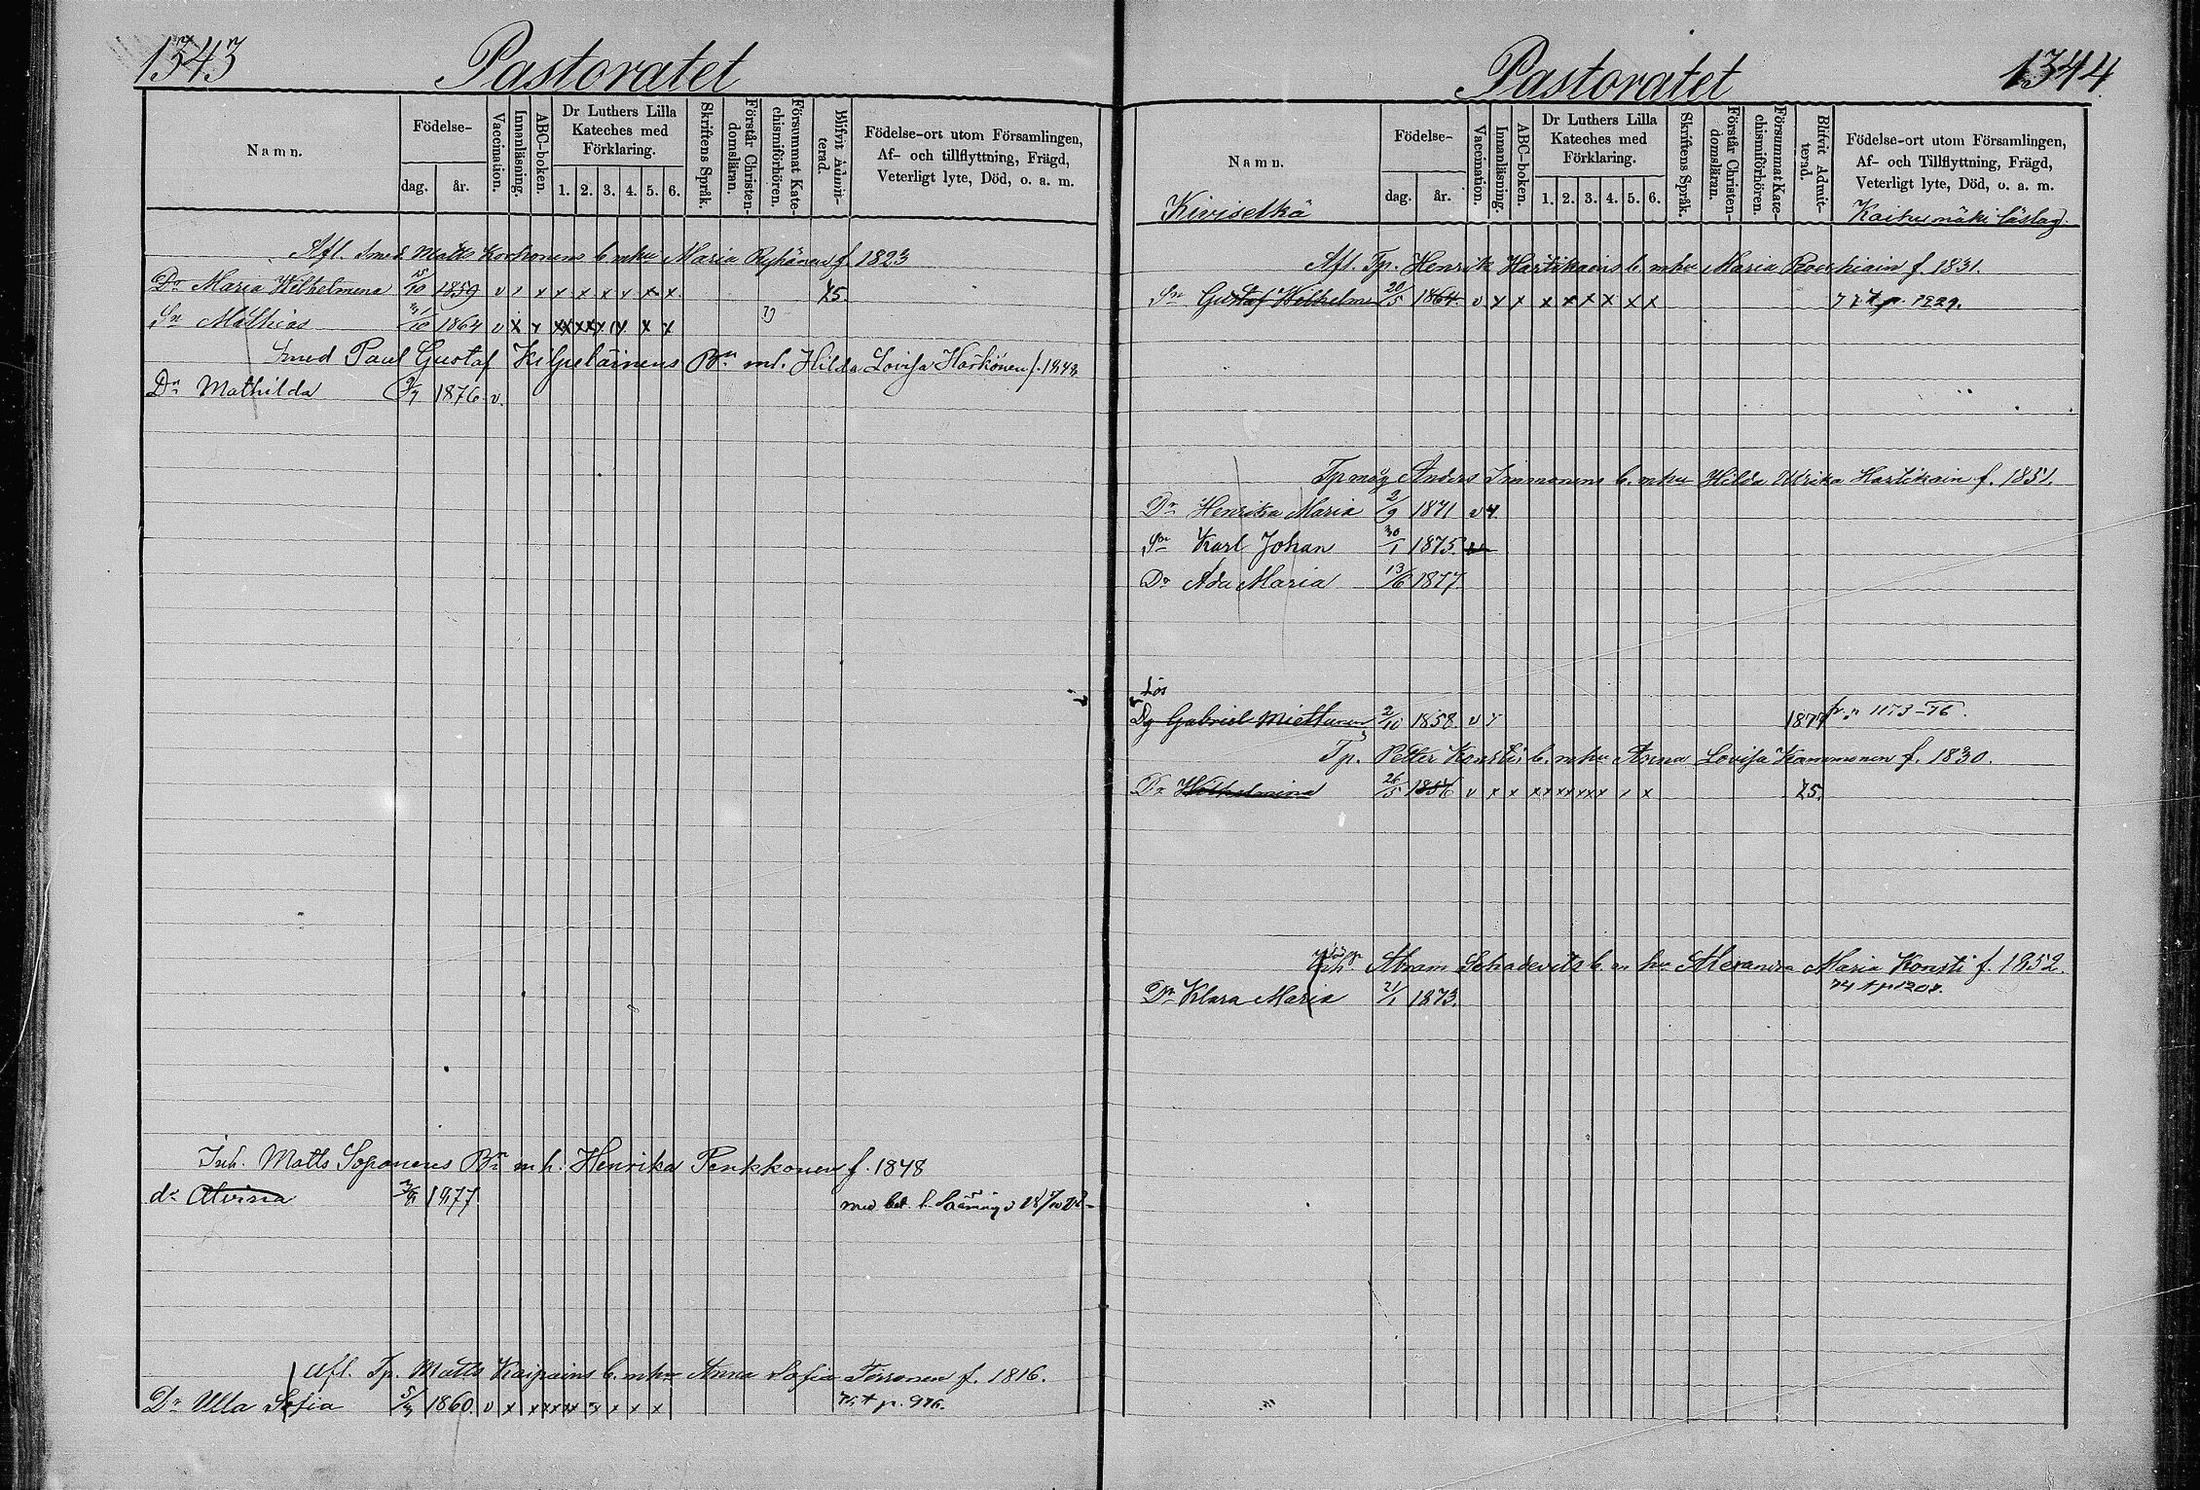 1343
Pastoratet
Namn.
Födelse-
dag.
år.
Vaccination.
Innanläsning.
ABC-boken.
Dr Luthers Lilla
Kateches med
Förklaring.
1. 2. 3. 4. 5. 6.
Skriftens Språk.
Förstår Christen-
domsläran.
Försummat Kate-
chismiförhören.
Blifvit Admit-
terad.
Födelse-ort utom Församlingen,
Af- och tillflyttning, Frägd,
Veterligt lyte, Död, o. a. m.
Afl. Smed. Matts Korhonens b. m hu Maria Ryhänen f. 1823
Dr Maria Wilhelmina 1859 v x x x x x x x 75.
Sn Mathias 31/10 1864 v x x xx xx x x x x
Smed Paul Gustaf Kilpeläinens Bn m h. Hilda Lovisa Harkönen f. 1848
Dr Mathilda 1876 v.
Inh. Matts Soponens Bn m h. Henrika Penkkonen f. 1848
dr Alvina 1877.
Afl. Tp. Matts Kaipains b. m hu Anna Sofia Torronen f. 1816.
Dr Ulla Sofia 1860. v x x x x x x x x x p. 976.
1344.
Pastoratet
Namn.
Kiviselkä
Födelse-
dag.
år.
Vaccination.
Innanläsning.
ABC-boken.
Dr Luthers Lilla
Kateches med
Förklaring.
1. 2. 3. 4. 5. 6.
Skriftens Språk.
Förstår Christen-
domsläran.
Försummat Kate-
chismiförhören.
Blifvit Admit-
terad.
Födelse-ort utom Församlingen,
Af- och Tillflyttning, Frägd,
Veterligt lyte, Död, o. a. m.
Kaitumäki läslag.
Afl. Tp. Henrik Hartikains b. m hu Maria f. 1831.
Sn Gustaf Wilhelm 20/5 1864. v x x x x x x x x
Tp måg Anders Immonens b. m hu Hilda Ulrika Hartikain f. 1851.
Dr Henrika Maria 2/9 1871 v
Sn Karl Johan 30/1 1875.
Dr Ada Maria 13/6 1877.
Lös
Dg Gabriel Miettunen 2/10 1858 v 1877 fr. p. 1173-76.
Tp. Petter Konsti b. m hu Anna Lovisa Kammonen f. 1830.
Dr Wilhelmina 26/5 1856 v x x xx xx xxx x x 75.
Abram b. m hu Alexandra Maria Konsti f. 1852.
Dr Klara Maria 21/1 1873.